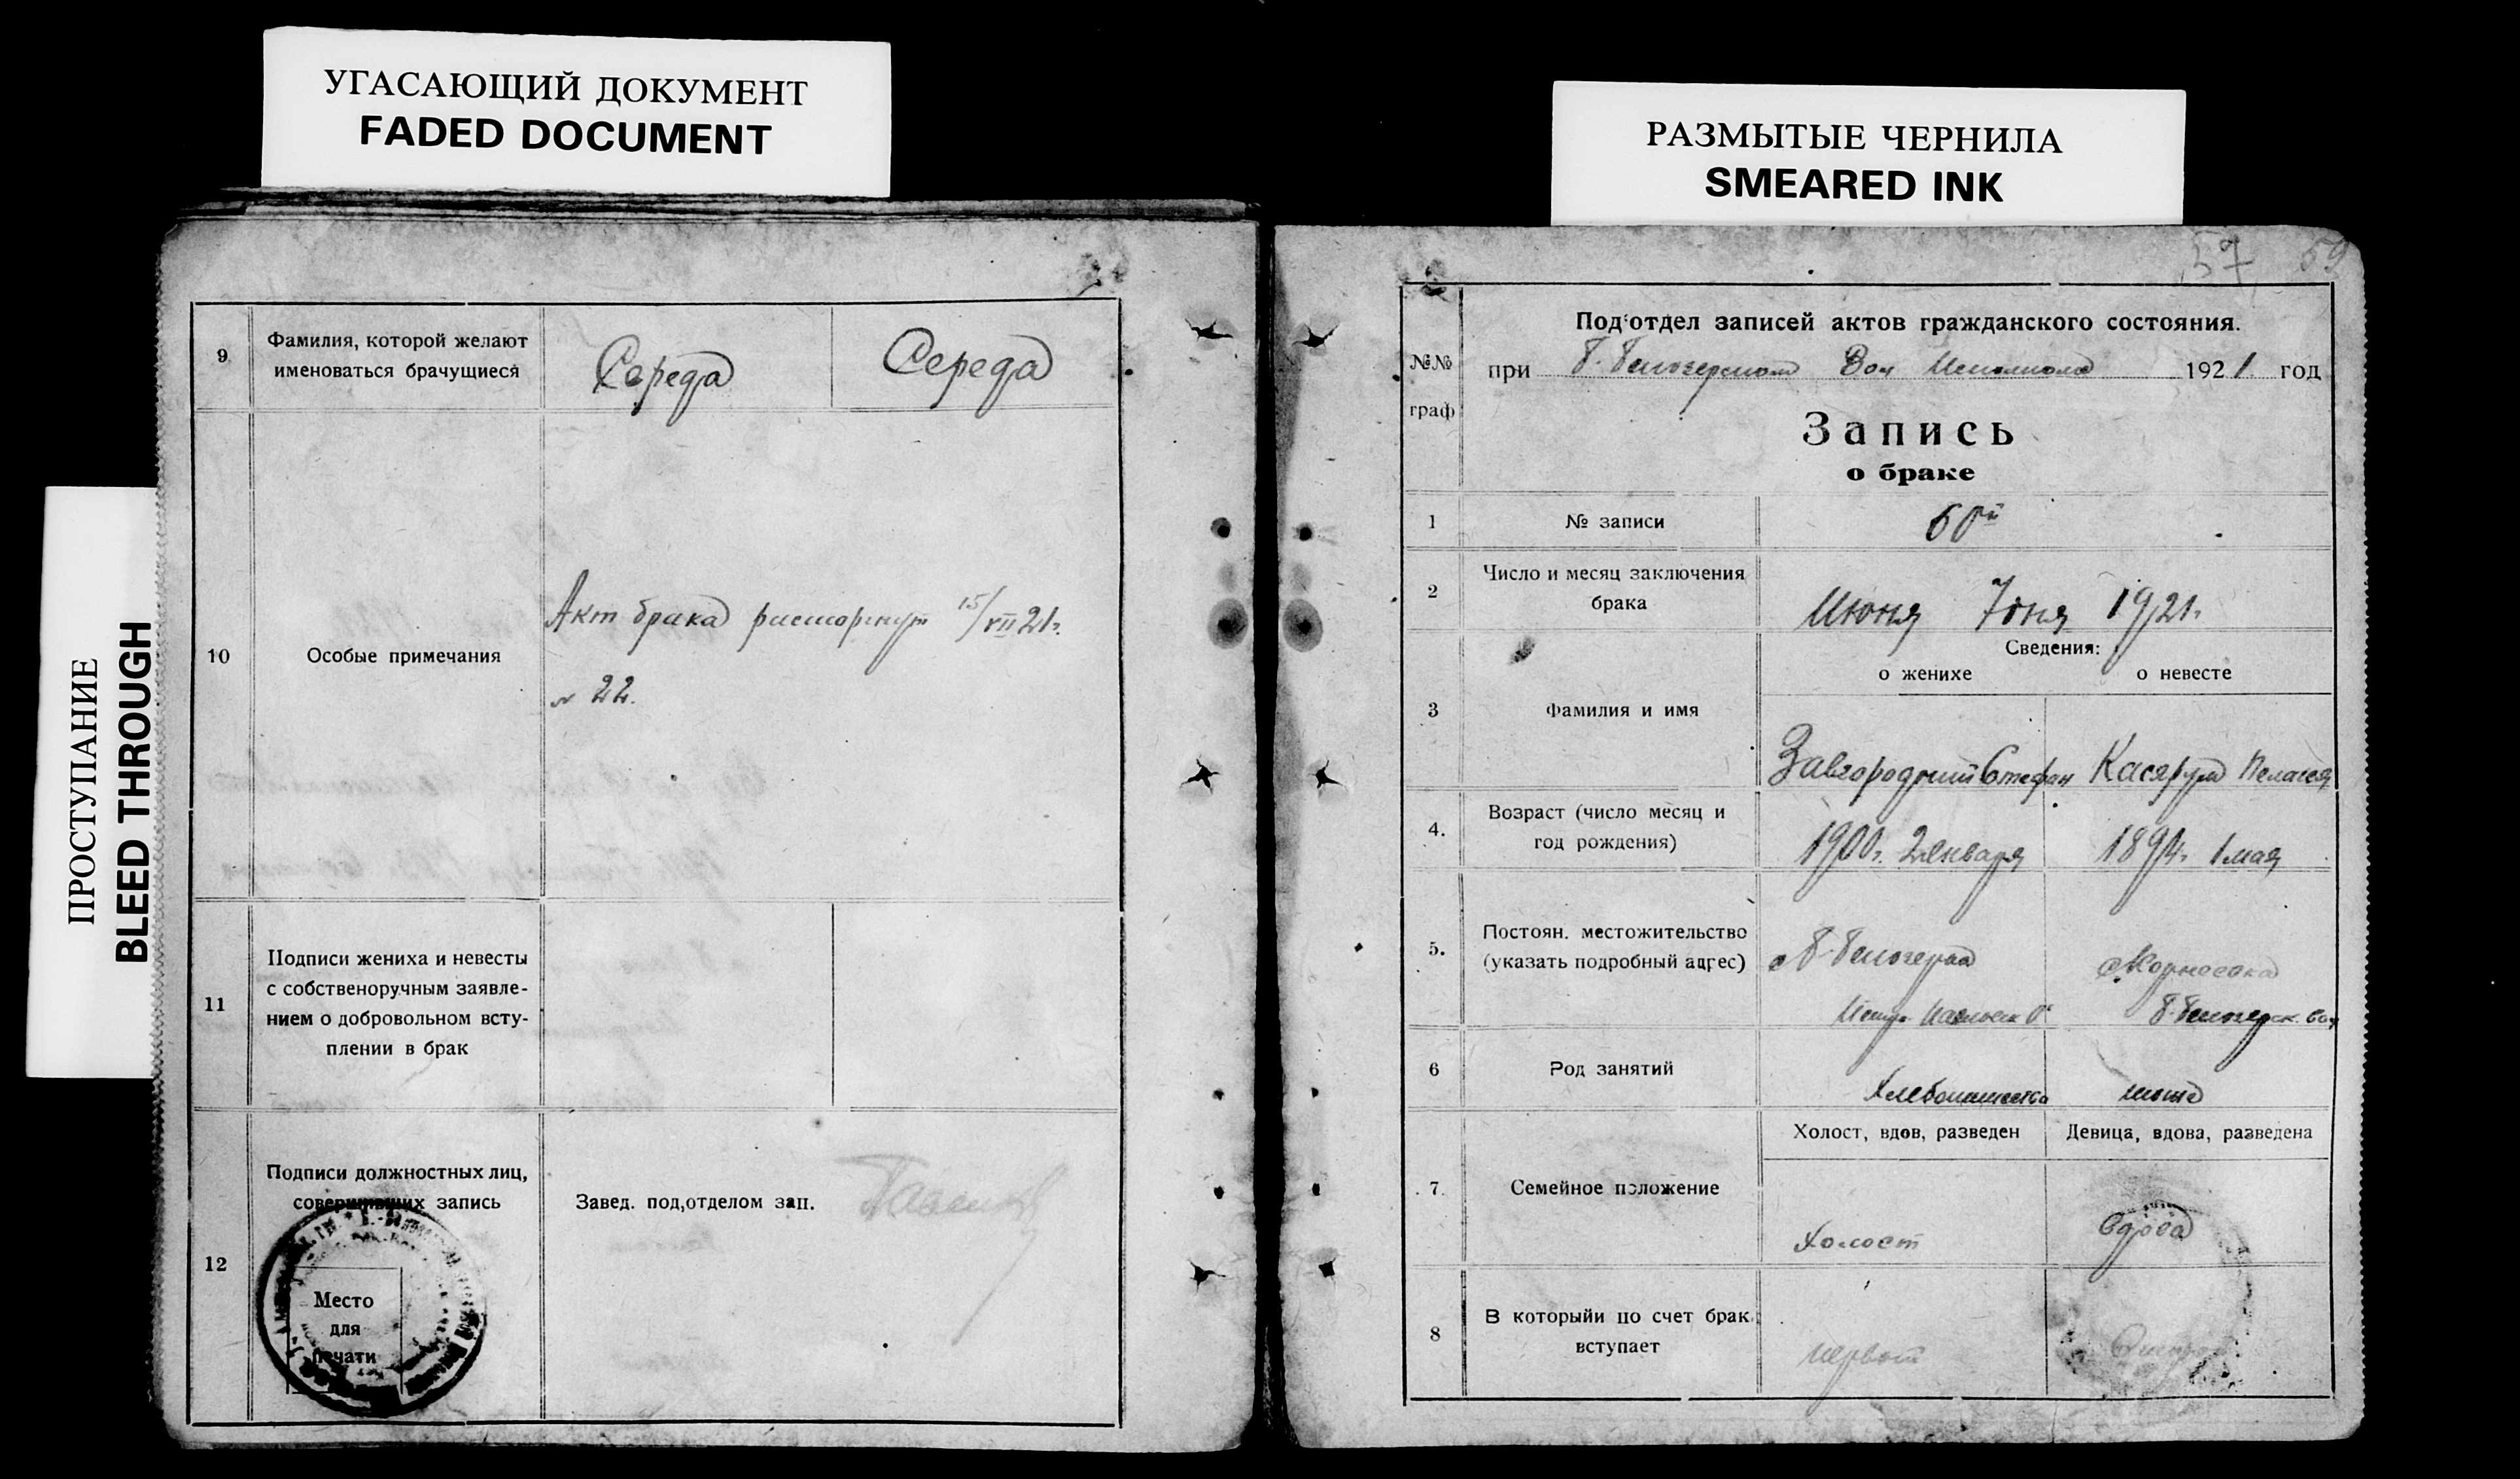 УГАСАЮЩИЙ ДОКУМЕНТ
FADED DOCUMENT
ПРОСТУПАНИЕ
BLEED THROUGH
9
Фамилия, которой желают
именоваться брачущиеся
Середа
Середа
10
Особые примечания
Акт брака расторгнут 15/VII 21г.
№ 22.
11
Подписи жениха и невесты
с собственоручным заявле-
нием о добровольном всту-
плении в брак
12
Подписи должностных лиц,
совершивших запись
Завед. под,отделом зап.
Место
для
печати
РАЗМЫТЫЕ ЧЕРНИЛА
SMEARED INK
57 59
Под'отдел записей актов гражданского состояния.
№№
граф
при Б. Белозерском Вол Исполкоме 1921 год
Запись
о браке
1
№ записи
60й
2
Число и месяц заключения
брака
Июня 7 дня 1921г.
Сведения:
о женихе
о невесте
3
Фамилия и имя
Завгородний Стефан
Пелагея
4.
Возраст (число месяц и
год рождения)
1900г. 2 января
1 мая
5.
Постоян. местожительство
(указать подробный адрес)
с Б-Белозерка
Б-Белозерск. вол
6
Род занятий
Хлебопашество
тоже
7.
Семейное положение
Холост, вдов, разведен
Девица, вдова, разведена
Холост
вдова
8
В которыйи по счет брак
вступает
первый